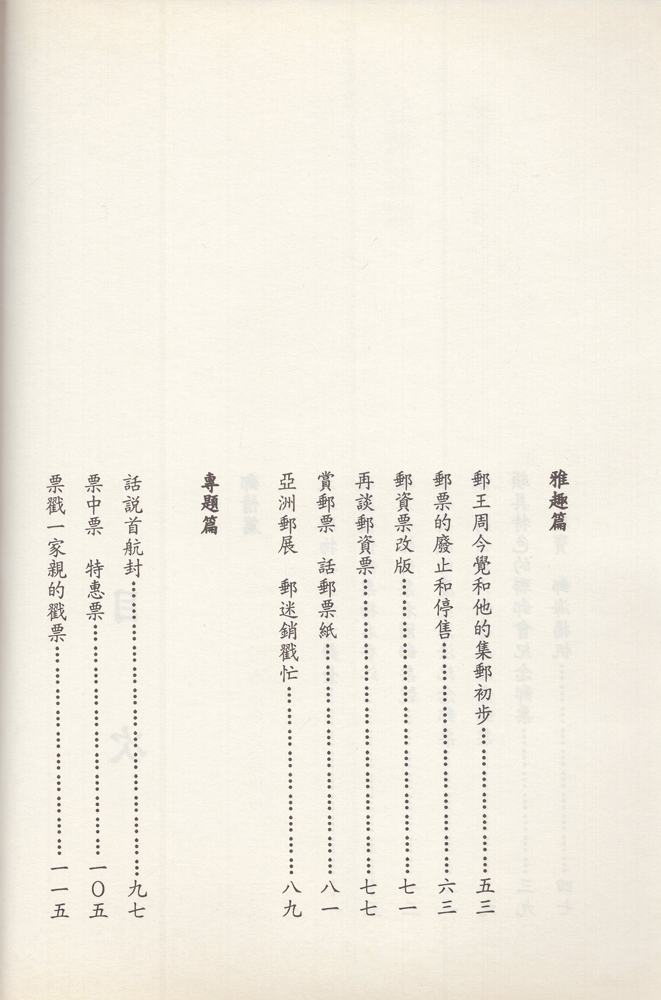 雅趣篇
郵王周今覺和他的集郵初步……………………五三
郵票的廢止和停售……………………六三
郵資票改版……………………七一
再談郵資票……………………七七
賞郵票 話郵票紙……………………八一
亞洲郵展 郵迷銷戳忙……………………八九
專題篇
話説首航封……………………九七
票中票 特惠票……………………一〇五
票戳一家親的戳票……………………一一五